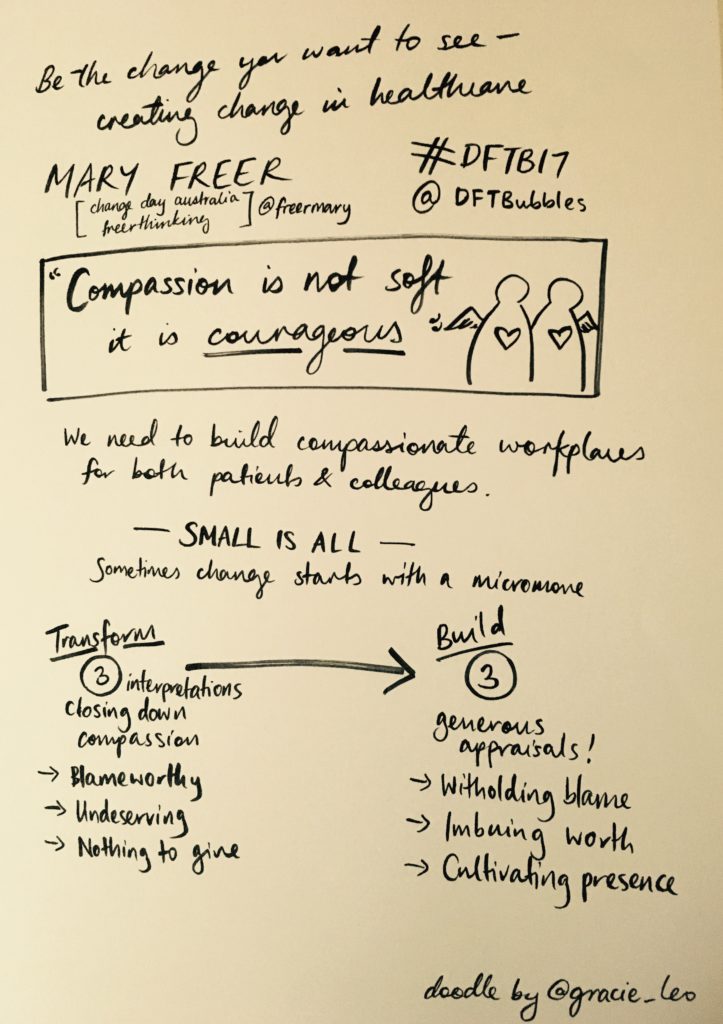 Be the change you want to see –
creating change in healthcare
MARY FREER
[change day australia
freerthinking] @freermary
#DFTB17
@ DFTBubbles
"Compassion is not soft
it is courageous
We need to build compassionate workplaces
for both patients & colleagues.
— SMALL IS ALL —
Sometimes change starts with a micromove
Transform
3 interpretations
closing down
compassion
→ Blameworthy
→ Undeserving
→ Nothing to give
Build
3
generous
appraisals!
→ Witholding blame
→ Imbuing worth
→ Cultivating presence
doodle by @gracie_leo